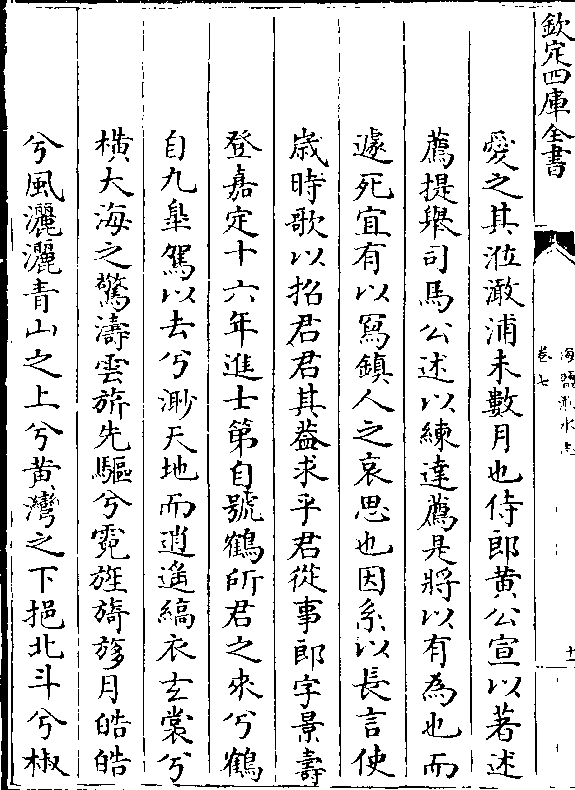 欽定四庫全書
海鹽澉水志
卷七
十一
愛之其涖澉浦未數月也侍郎黄公宣以著述
薦提舉司馬公述以練達薦是將以有為也而
遽死宜有以寫鎮人之哀思也因系以長言使
歲時歌以招君君其益求乎君從事郎字景壽
登嘉定十六年進士第自號鶴所君之來兮鶴
自九臯駕以去兮渺天地而逍遥縞衣玄裳兮
横大海之驚濤雲旂先驅兮霓旌旖旎月皓皓
兮風灑灑青山之上兮黄灣之下挹北斗兮椒